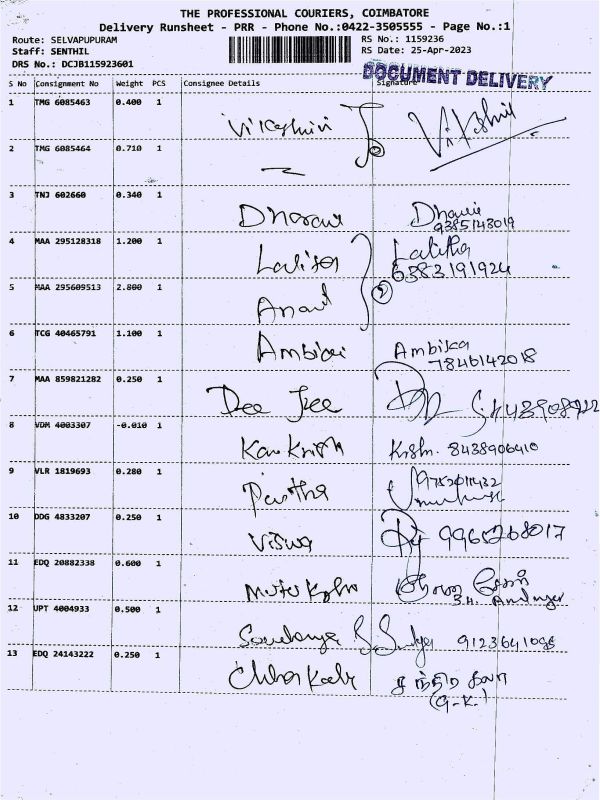 THE PROFESSIONAL COURIERS, COIMBATORE
Delivery Runsheet - PRR - Phone No.:0422-3505555 - Page No.:1
Route: SELVAPUPURAM RS No.: 1159236
Staff: SENTHIL RS Date: 25-Apr-2023
DRS No.: DCJB115923601
DOCUMENT DELIVERY
S No Consignment No Weight PCS Consignee Details Signature
1 TMG 6085463 0.400 1
2 TMG 6085464 0.710 1
3 TNJ 602660 0.340 1
9385143019
4 MAA 295128318 1.200 1 Lalitha
6383191924
5 MAA 295609513 2.800 1 Anand
6 TCG 40465791 1.100 1 Ambika
7846142018
7 MAA 859821282 0.250 1 Dee Jee
8 VDM 4003307 -0.010 1 8438906410
9 VLR 1819693 0.280 1 Partha
10 DDG 4833207 0.250 1 Viswa 9965268017
11 EDQ 20882338 0.600 1
12 UPT 4004933 0.500 1
13 EDQ 24143222 0.250 1
(G.K.)